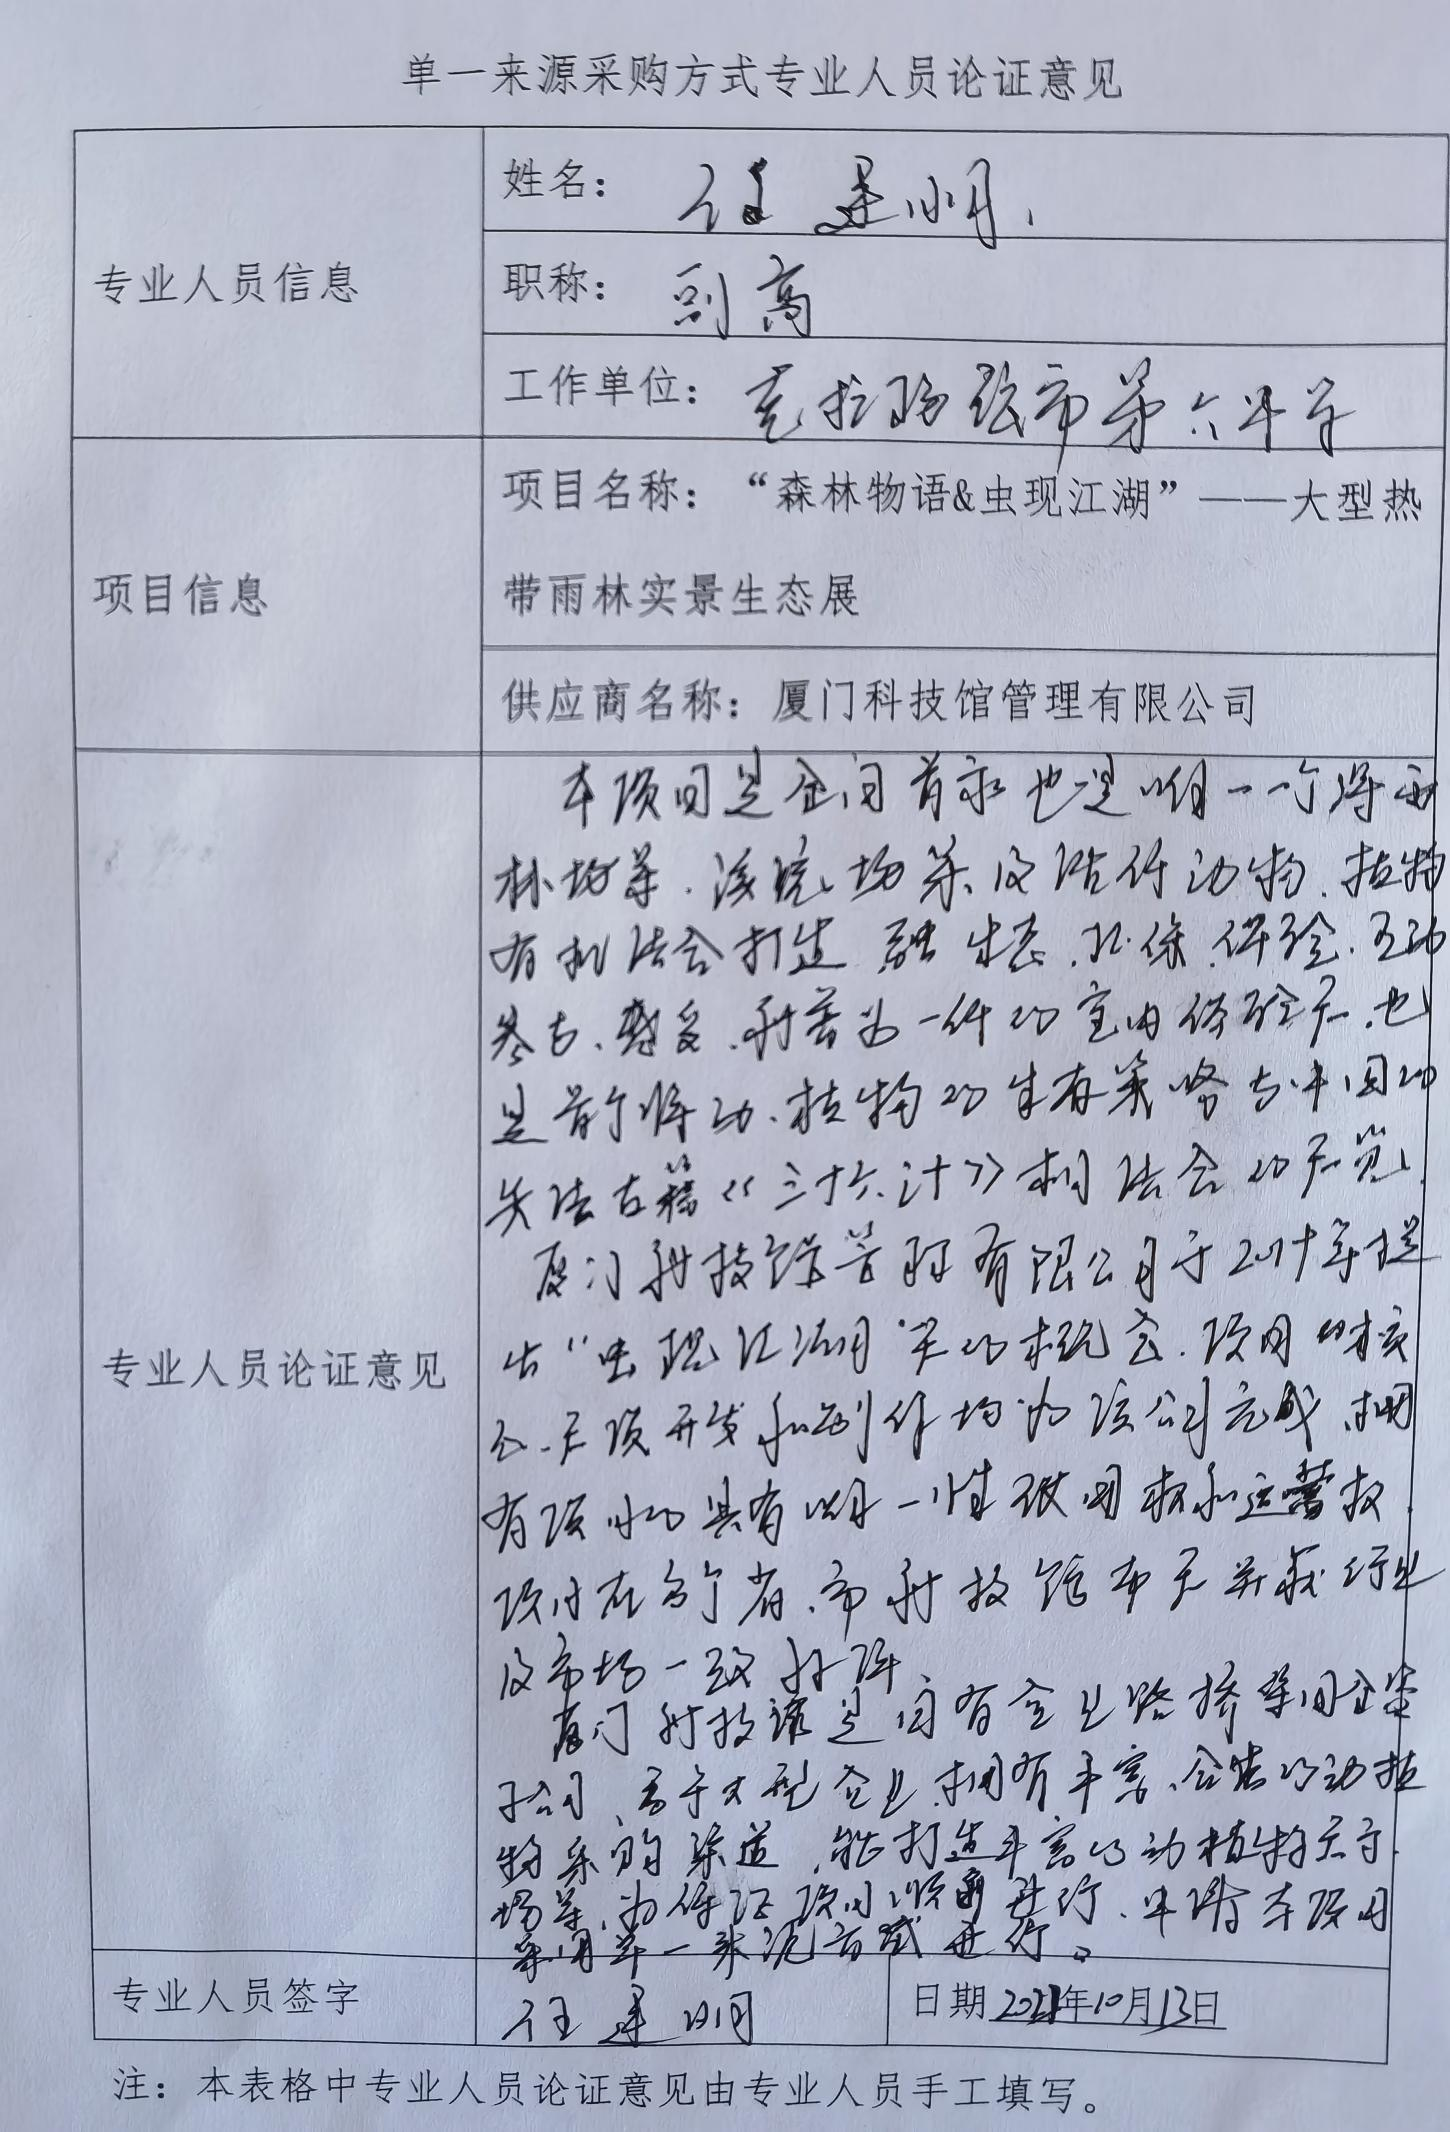 单一来源采购方式专业人员论证意见
专业人员信息
姓名：任建明
职称：副高
工作单位：克拉玛依市第六中学
项目信息
项目名称：“森林物语&虫现江湖”——大型热
带雨林实景生态展
供应商名称：厦门科技馆管理有限公司
专业人员论证意见
本项目是全国首家也是唯一一个将雨
林场景、演绎场景、及活体动物、植物
有机结合打造融生态、环保、体验、互动
参与、感受、科普为一体的室内体验展，也
是首个将动、植物的生存策略与中国的
兵法古籍《三十六计》相结合的展览。
厦门科技馆管理有限公司于2017年提
出“虫现江湖”展的概念、项目的核
心、展项开发和制作均为该公司完成，拥
有项目的具有唯一性使用权和运营权，
项目在多个省、市科技馆布展并获行业
及市场一致好评
厦门科技馆是国有企业路桥集团全资
子公司，属于大型企业，拥有丰富、合法的动植
物采购渠道，能打造丰富的动植物展示
场景，为保证项目顺利进行，申请本项目
采用单一来源方式进行。
专业人员签字
任建明
日期 2021年10月13日
注：本表格中专业人员论证意见由专业人员手工填写。